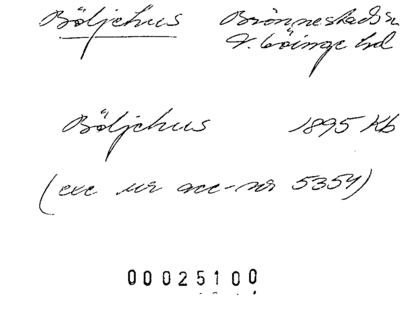 Böljehus Brönnestads sn
V. Göinge hd
Böljehus 1895 Kb
(exc ur acc-nr 5354)
00025100